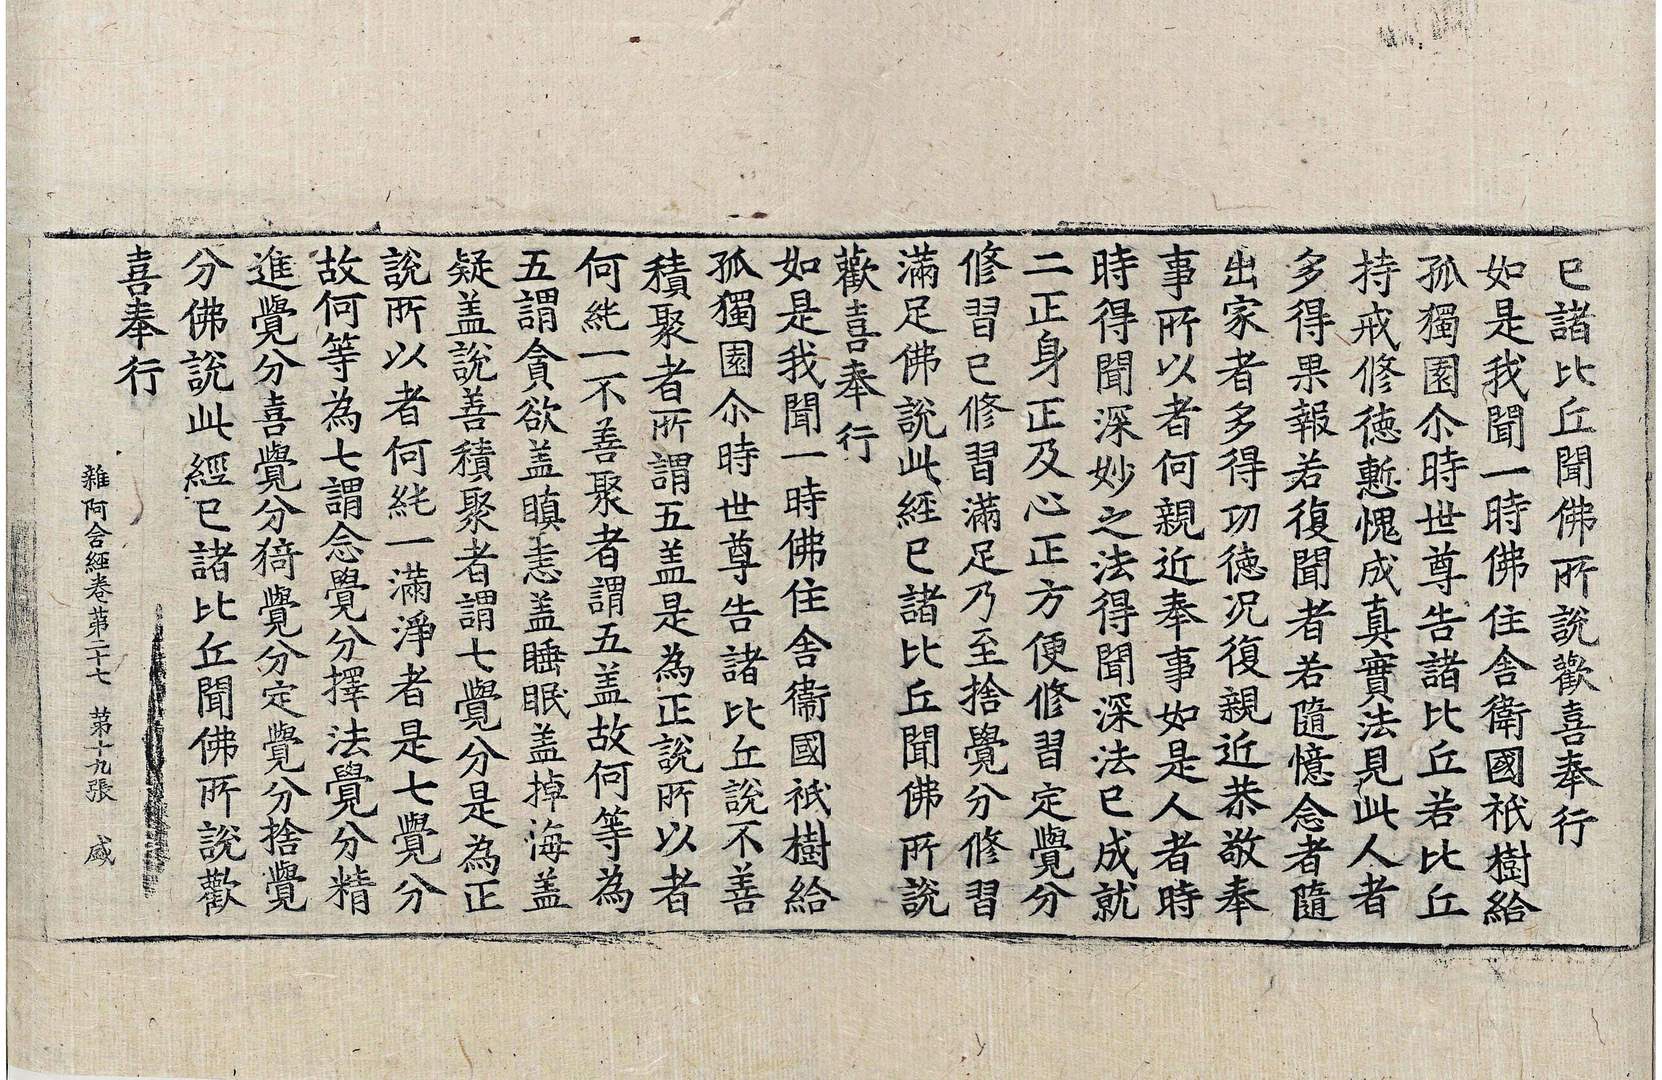 已諸比丘聞佛所說歡喜奉行
如是我聞一時佛住舍衛國祇樹給
孤獨園尒時世尊告諸比丘若比丘
持戒修徳慙愧成真實法見此人者
多得果報若復聞者若隨憶念者隨
出家者多得功徳況復親近恭敬奉
事所以者何親近奉事如是人者時
時得聞深妙之法得聞深法已成就
二正身正及心正方便修習定覺分
修習已修習滿足乃至捨覺分修習
滿足佛說此經已諸比丘聞佛所說
歡喜奉行
如是我聞一時佛住舍衞國祇樹給
孤獨園尒時世尊告諸比丘說不善
積聚者所謂五盖是為正說所以者
何純一不善聚者謂五盖故何等為
五謂貪欲盖瞋恚盖睡眠盖掉海盖
疑盖說善積聚者謂七覺分是為正
說所以者何純一滿淨者是七覺分
故何等為七謂念覺分擇法覺分精
進覺分喜覺分猗覺分定覺分捨覺
分佛說此經已諸比丘聞佛所說歡
喜奉行
雜阿含經卷第二十七 第十九張 盛